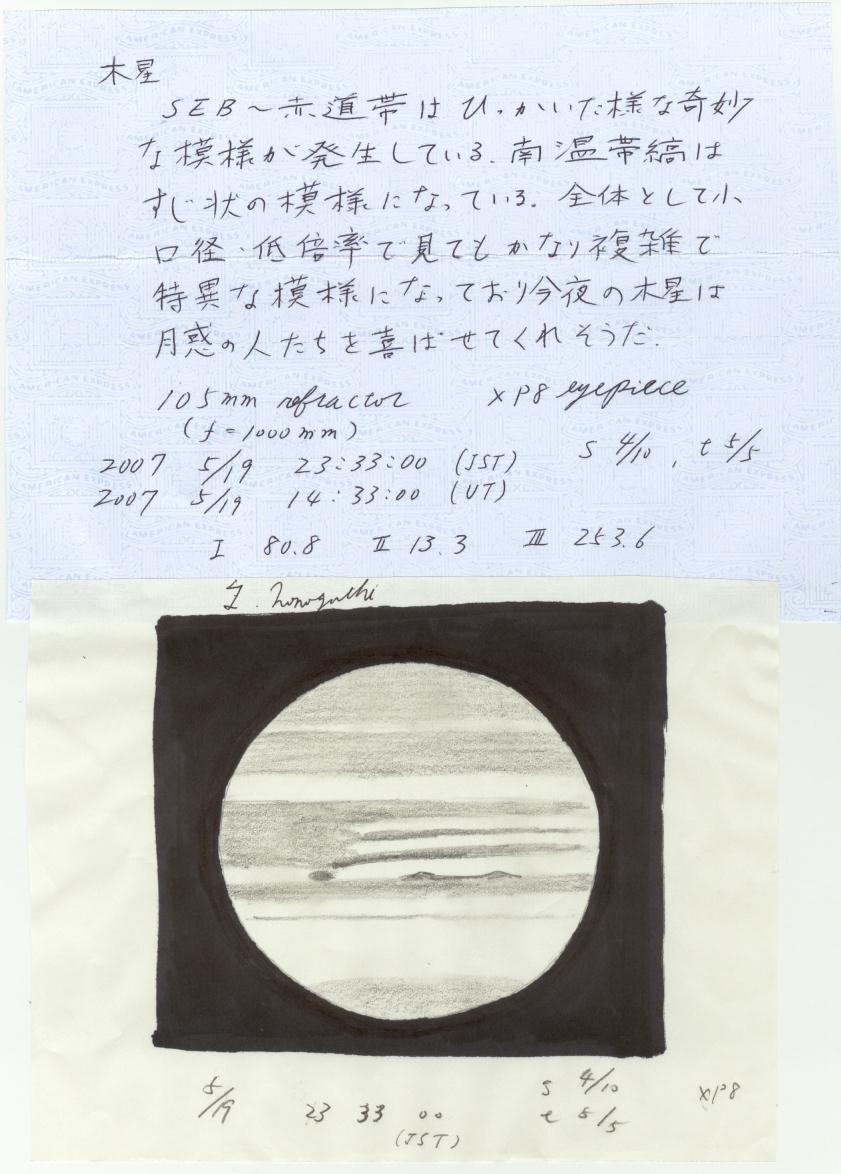 木星
SEB～赤道帯はひっかいた様な奇妙
な模様が発生している. 南温帯縞は
すじ状の模様になっている. 全体として小
口径・低倍率で見てもかなり複雑で
特異な模様になっており今夜の木星は
月惑の人たちを喜ばせてくれそうだ.
105mm refractor XP8 eyepiece
(f=1000mm)
2007 5/19 23:33:00 (JST) S 4/10, t 5/5
2007 5/19 14:33:00 (UT)
I 80.8 II 13.3 III 253.6
5/19 23 33 00 (JST)
S 4/10
t 5/5
XP8